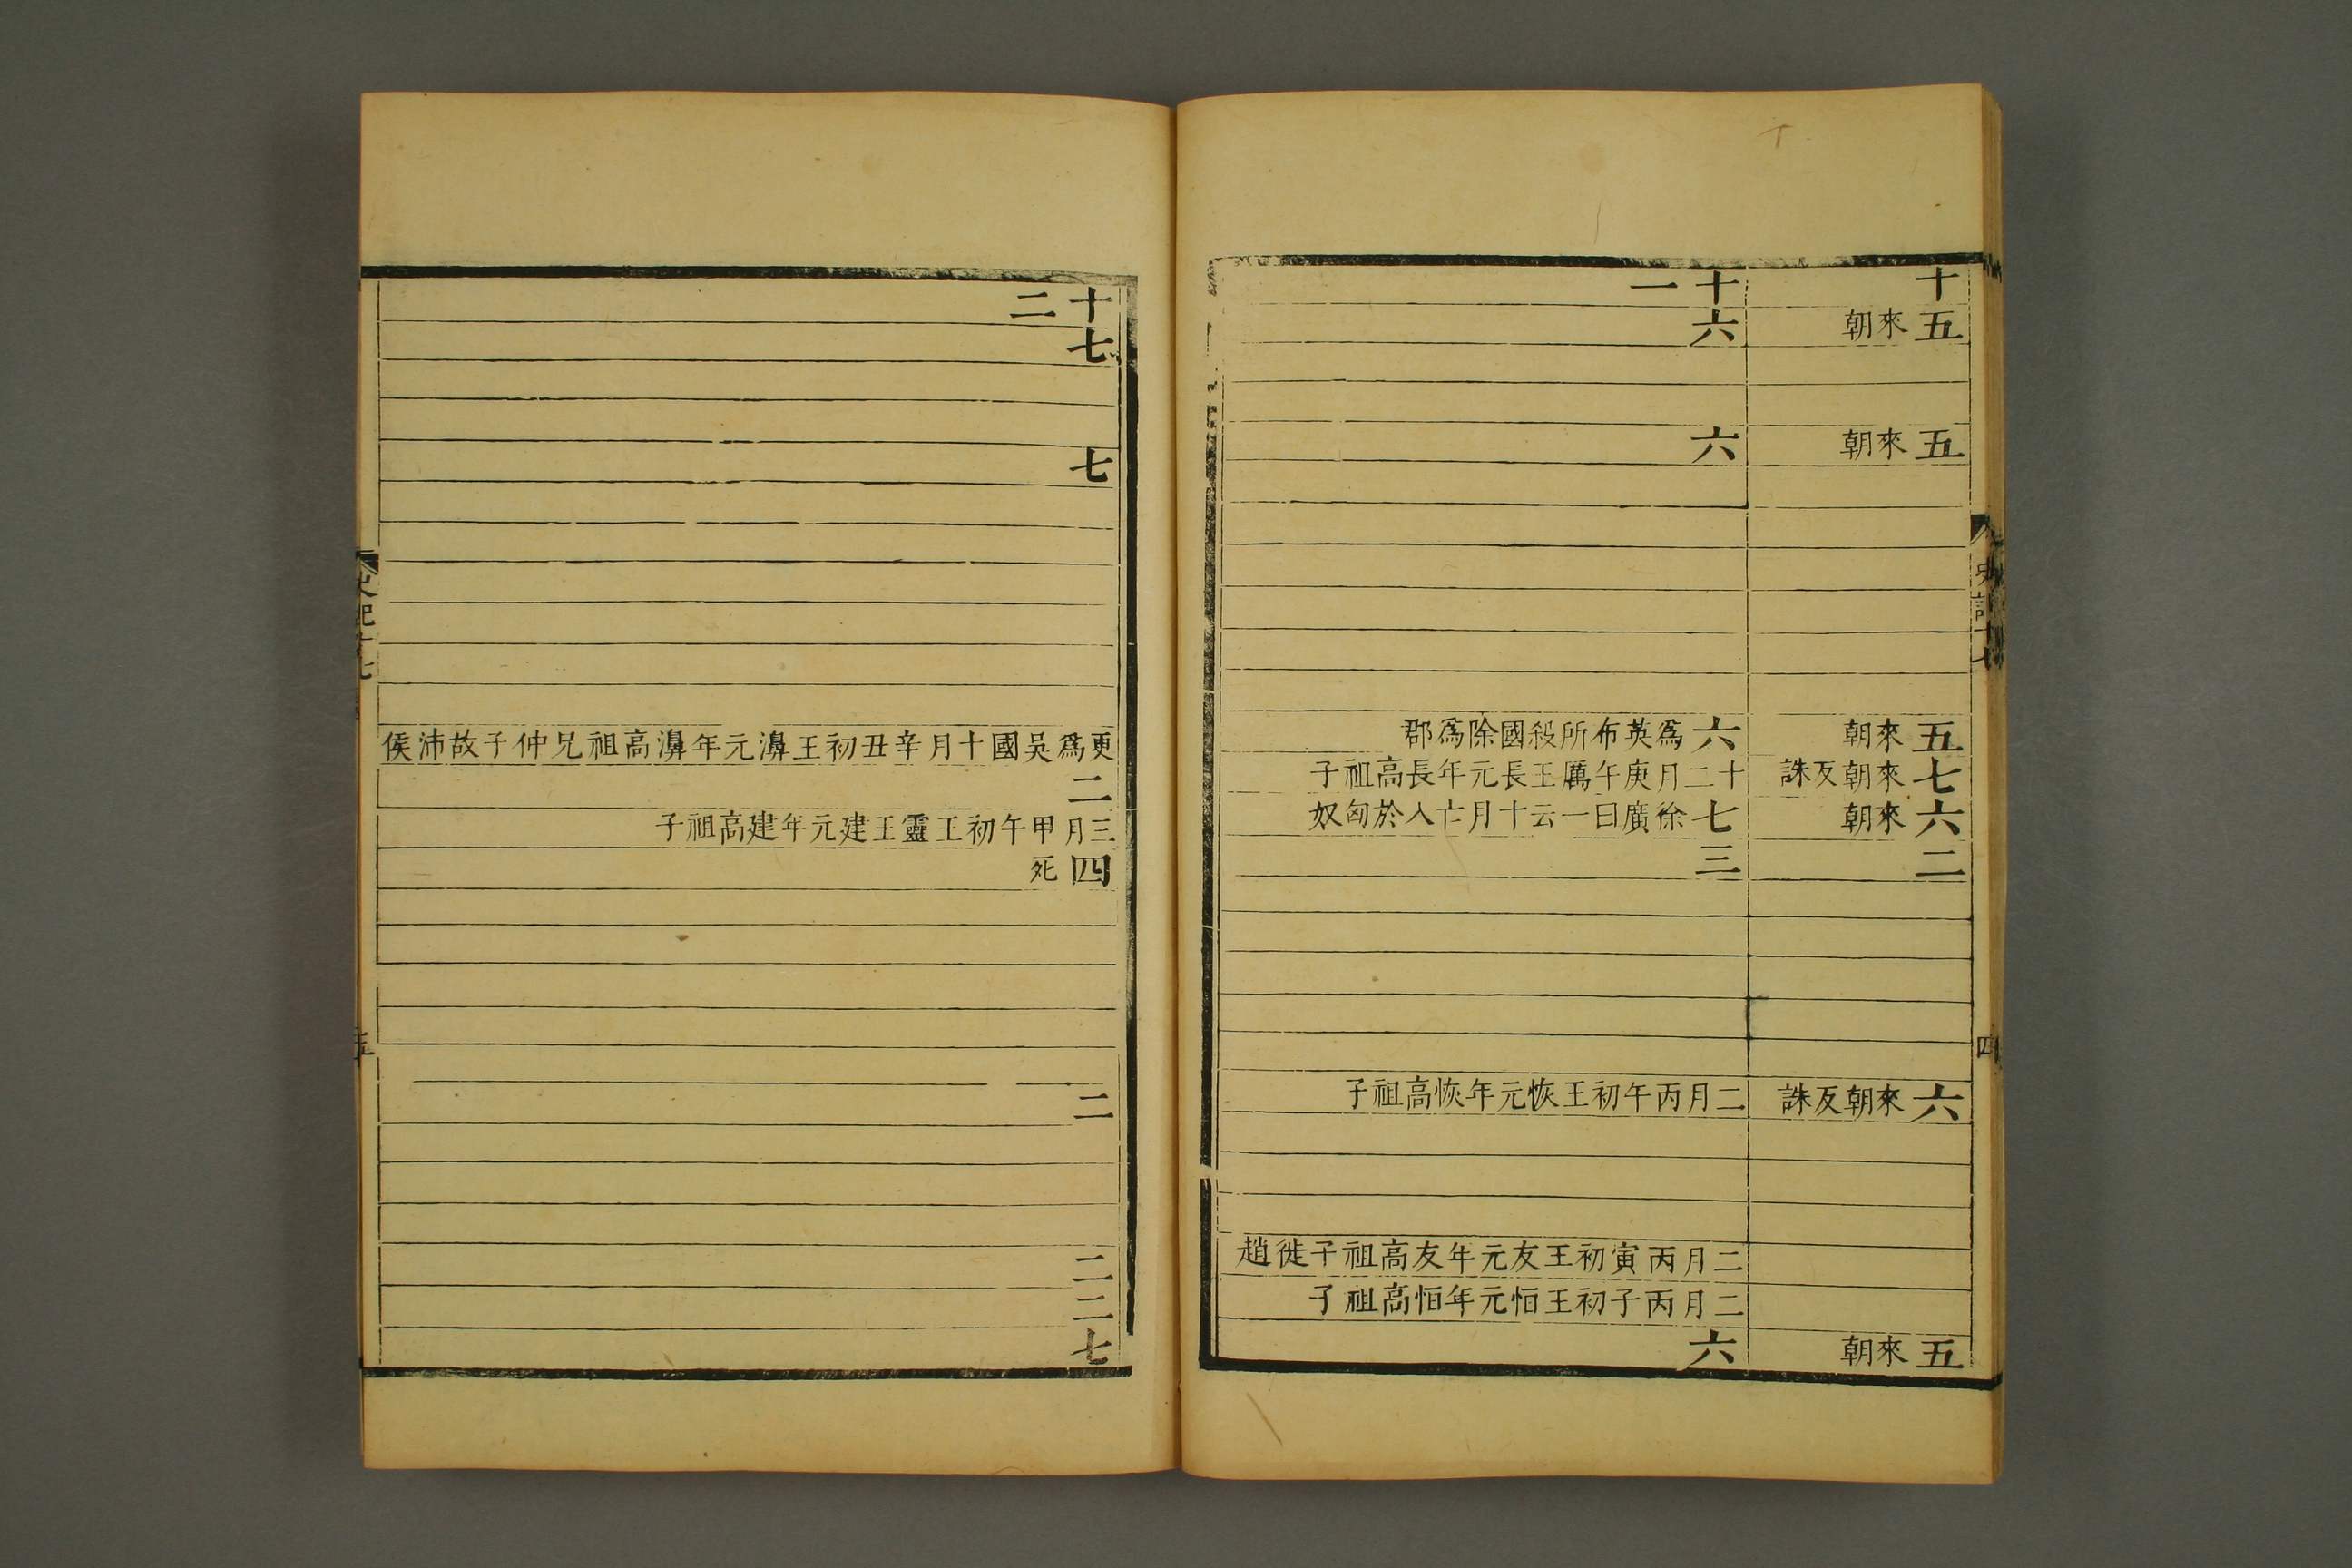 十
五 來朝
五 來朝
五 來朝
七 來朝反誅
六 來朝
二
六 來朝反誅
五 來朝
十一
六
六
六 爲英布所殺國除爲郡
十二月庚午厲王長元年長高祖子
七 徐廣曰一云十月亡入於匈奴
三
二月丙午初王恢元年恢高祖子
二月丙寅初王友元年友高祖子徙趙
二月丙子初王恒元年恒高祖子
六
史記十七
四
十二
七
七
更爲吳國十月辛丑初王濞元年濞高祖兄仲子故沛侯
二
三月甲午初王靈王建元年建高祖子
四 死
二
二
二
七
史記十七
五